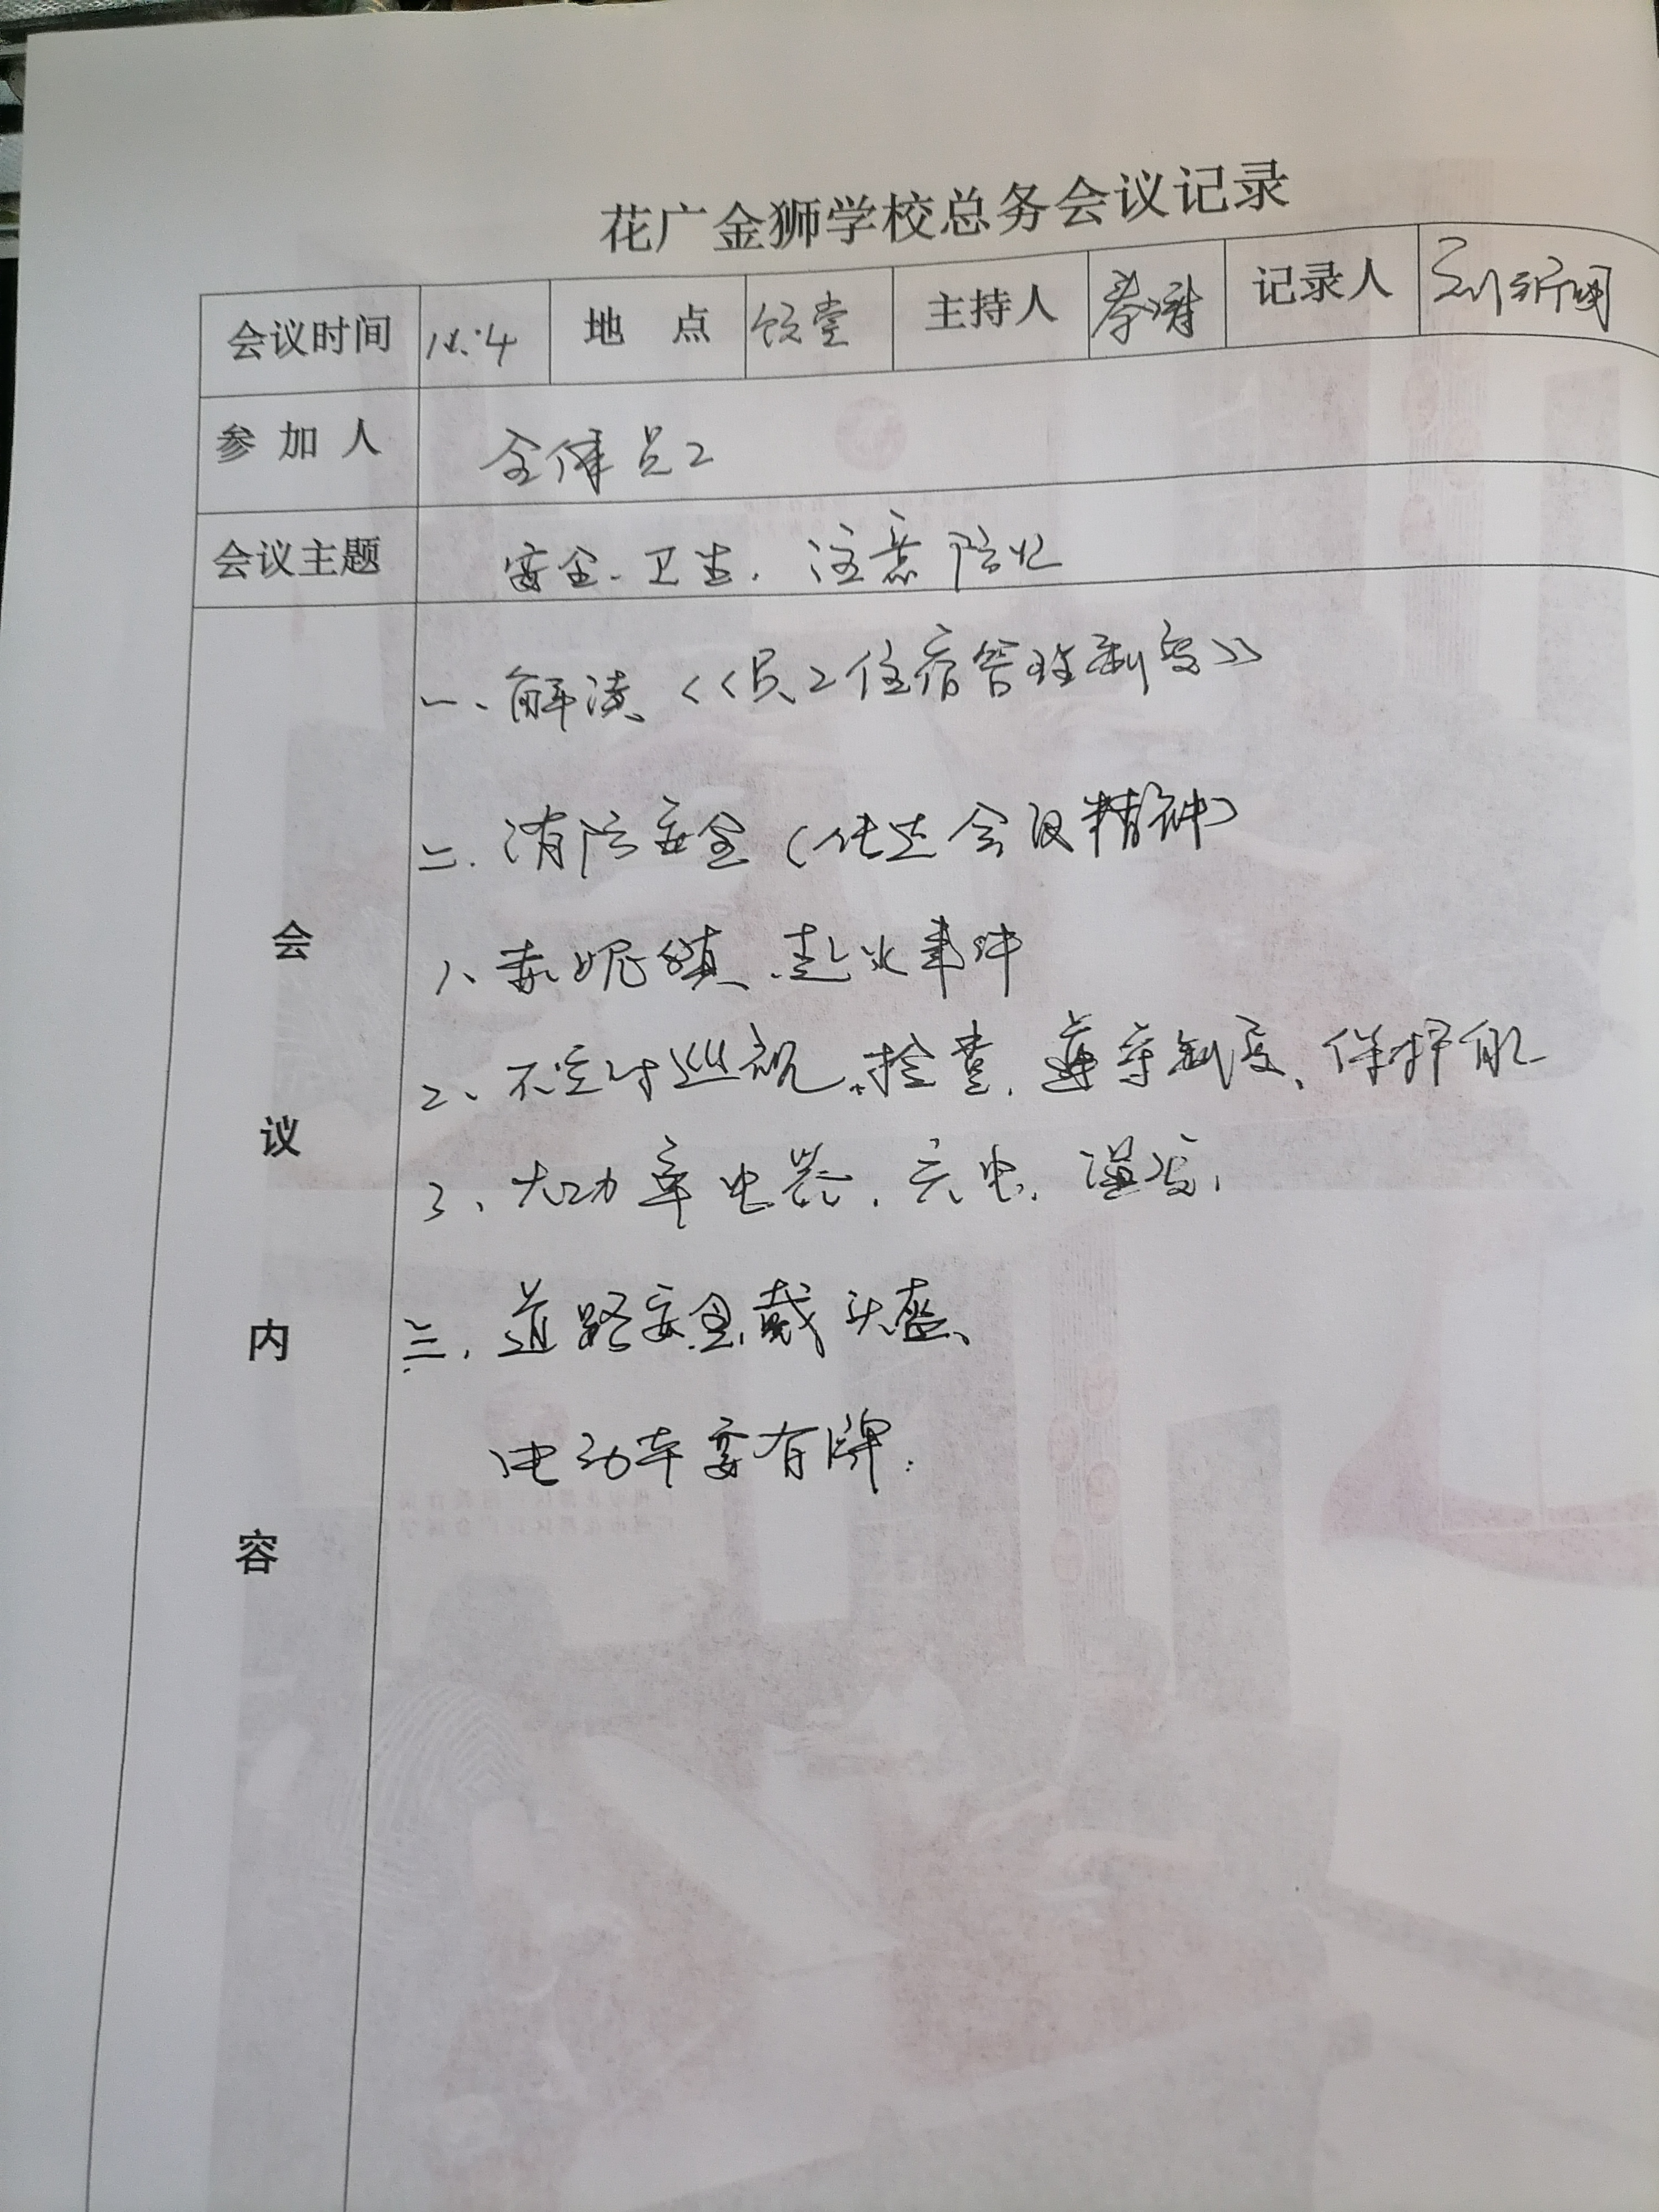 花广金狮学校总务会议记录
会议时间 地 点 饭堂 主持人 记录人
参加人 全体员工
会议主题 安全、卫生、注意防火
会议内容
一、解读《员工住宿管理制度》
二、消防安全(传达会议精神)
1、赤坭镇、起火事件
2、不定时巡视、检查、遵守制度、保护自己
3、大功率电器、充电、温度、
三、道路安全、戴头盔、
电动车要有牌.